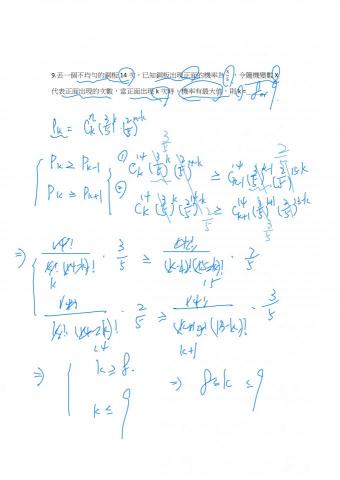 9.丟一個不均勻的銅板 14 次，已知銅板出現正面的機率為 3/5，令隨機變數 X
代表正面出現的次數，當正面出現 k 次時，機率有最大值，則 k= 8 or 9
P_k = C_k^n (3/5)^k · (2/5)^{n-k}
P_k ≥ P_{k-1} ① C_k^{14} (3/5)^k (2/5)^{14-k} ≥ C_{k-1}^{14} (3/5)^{k-1} (2/5)^{15-k}
P_k ≥ P_{k+1} ② C_k^{14} (3/5)^k (2/5)^{14-k} ≥ C_{k+1}^{14} (3/5)^{k+1} (2/5)^{13-k}
⇒ 14!/k!(14-k)! · 3/5 ≥ 14!/(k-1)!(15-k)! · 2/5
14!/k!(14-k)! · 2/5 ≥ 14!/(k+1)!(13-k)! · 3/5
⇒ k ≥ 8. ⇒ 8 ≤ k ≤ 9
k ≤ 9